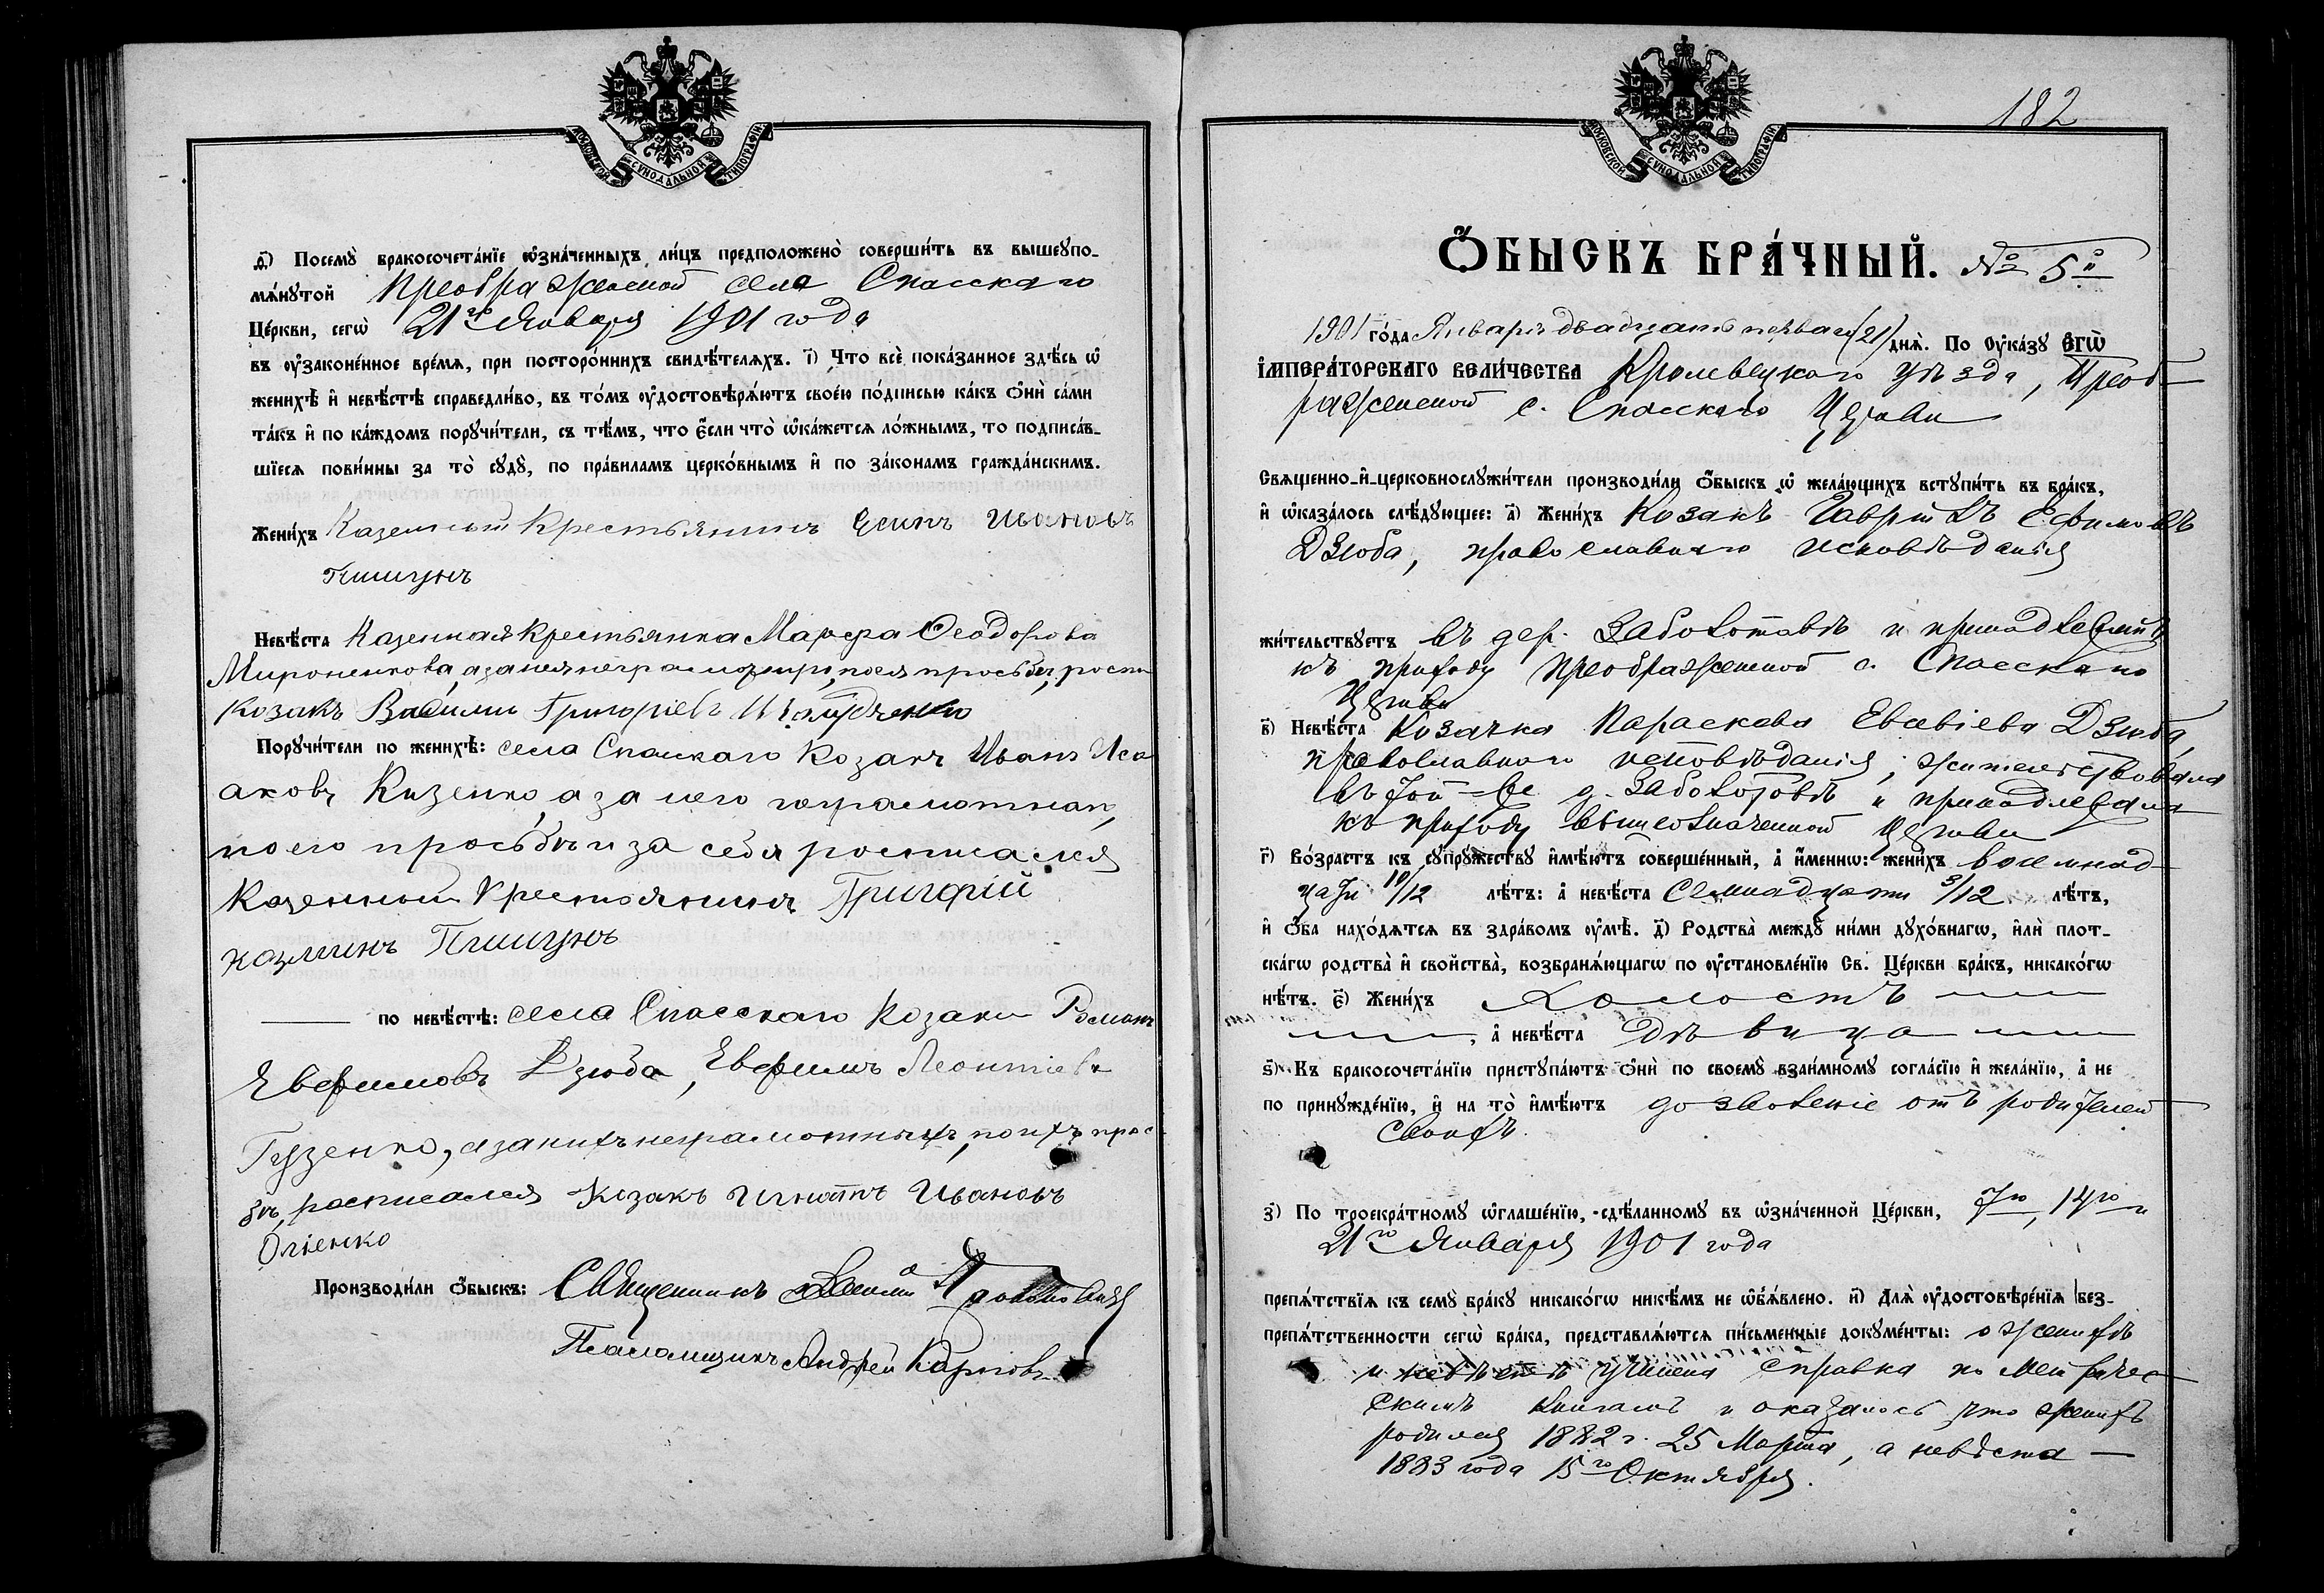 МОСКОВСКОЙ СѴНОДАЛЬНОЙ ТИПОГРАФІИ
ѳ҃) Посемꙋ̀ бракосочета́нїе ѡ҆зна́ченныхъ ли́цъ предположено̀ соверши́ть въ вышеꙋпо-
мѧ́нꙋтой Преображенской села Спасскаго
Це́ркви, сегѡ̀ 21го Января 1901 года
въ ᲂу҆зако́ненное вре́мѧ, при посторо́ннихъ свидѣ́телѧхъ. і҃) Что всѐ пока́занное здѣ́сь ѡ҆
женихѣ̀ и҆ невѣ́стѣ справедли́во, въ то́мъ ᲂу҆достовѣрѧ́ютъ свое́ю по́дписью ка́къ ѻ҆нѝ са́ми
та́къ и҆ по ка́ждомъ порꙋчи́тели, съ тѣ́мъ, что є҆́сли что̀ ѡ҆ка́жетсѧ ло́жнымъ, то подписа́в-
шїесѧ пови́нны за то̀ сꙋдꙋ̀, по пра́виламъ церко́внымъ и҆ по зако́намъ гражда́нскимъ.
Жени́хъ Каземный Крестьянинъ Есипъ Ивановъ
Пишунъ
Невѣ́ста Казенная Крестьянка Марфа Ѳеодорова
Мироненкова, а за нея неграмотную, по ея просьбѣ, роспи
Козакъ Василии Григоріевъ
Порꙋчи́тели по женихѣ̀: села Спаскаго Козакъ Иванъ Иса
аковъ Кизенко, а за него неграмотнаго,
по его просьбѣ и за себя росписался
Казенный Крестьянинъ Григорій
Козминъ Пишунъ
по невѣ́стѣ: села Спасскаго Козаки Романъ
Евфимовъ Дзюба, Евфимъ Леонтіевъ
Гузенко, а за нихъ неграмотныхъ, по ихъ прос
бѣ, росписался Козакъ Игнатъ Ивановъ
Огіенко
Производи́ли ѻ҆́быскъ: Священникъ
Псаломщикъ Андрей Карповъ
182
МОСКОВСКОЙ СѴНОДАЛЬНОЙ ТИПОГРАФІИ
Ѻ҆́БЫСКЪ БРА́ЧНЫЙ. № 5й
1901 го́да Января двадцать перваго (21) днѧ̀. По ᲂу҆ка́зꙋ Є҆ГѠ̀
І҆МПЕРА́ТОРСКАГО ВЕЛИ́ЧЕСТВА Кролевецкаго уѣзда, Преоб-
раженской с. Спасскаго Церкви
Свѧще́нно-и҆-церковнослꙋжи́тели производи́ли ѻ҆́быскъ ѡ҆ жела́ющихъ встꙋпи́ть въ бра́къ,
и҆ ѡ҆каза́лось слѣ́дꙋющее: а҃) Жени́хъ Козакъ Гавріилъ Ефимовъ
Дзюба, православнаго исповѣданія
жи́тельствꙋетъ въ дер. Заболотовѣ и принадлежитъ
къ приходу Преображенской с. Спасскаго
Церкви
в҃) Невѣ́ста Козачка Параскева Евсевіева Дзюба,
православнаго исповѣданія, жительствовала
въ той-же д. Заболотовѣ и принадлежала
къ приходу вышеозначенной Церкви
г҃) Во́зрастъ къ сꙋпрꙋ́жествꙋ и҆мѣ́ютъ соверше́нный, а҆ и҆́меннѡ: жени́хъ восемнад-
цати 10/12 лѣ́тъ: а҆ невѣ́ста Семнадцати 3/12 лѣ́тъ,
и҆ ѻ҆́ба нахо́дѧтсѧ въ здра́вомъ ᲂу҆мѣ̀. д҃) Родства̀ междꙋ̀ ни́ми дꙋхо́внагѡ, и҆лѝ плот-
ска́гѡ родства̀ и҆ свойства̀, возбранѧ́ющагѡ по ᲂу҆становле́нїю Св. Це́ркви бра́къ, никако́гѡ
нѣ́тъ. є҃) Жени́хъ Холостъ
, а҆ невѣ́ста дѣвица
ѕ҃) Къ бракосочета́нїю пристꙋпа́ютъ ѻ҆нѝ по своемꙋ̀ взаи́мномꙋ согла́сїю и҆ жела́нїю, а҆ не
по принꙋжде́нїю, и҆ на то̀ и҆мѣ́ютъ дозволеніе отъ родителей
своихъ.
з҃) По троекра́тномꙋ ѡ҆глаше́нїю, сдѣ́ланномꙋ въ ѡ҆зна́ченной Це́ркви, 7го, 14го и
21го Января 1901 года
препѧ́тствїѧ къ семꙋ̀ бра́кꙋ никако́гѡ никѣ́мъ не ѡ҆б̾ѧ́влено. и҃) Длѧ̀ ᲂу҆достовѣре́нїѧ без-
препѧ́тственности сегѡ̀ бра́ка, представлѧ́ютсѧ пи́сьменные докꙋме́нты: о женихѣ
и невѣстѣ учинена справка по Метриче-
скимъ книгамъ и оказалось что женихъ
родился 1882 г. 25 Марта, а невѣста —
1883 года 15го Октября.